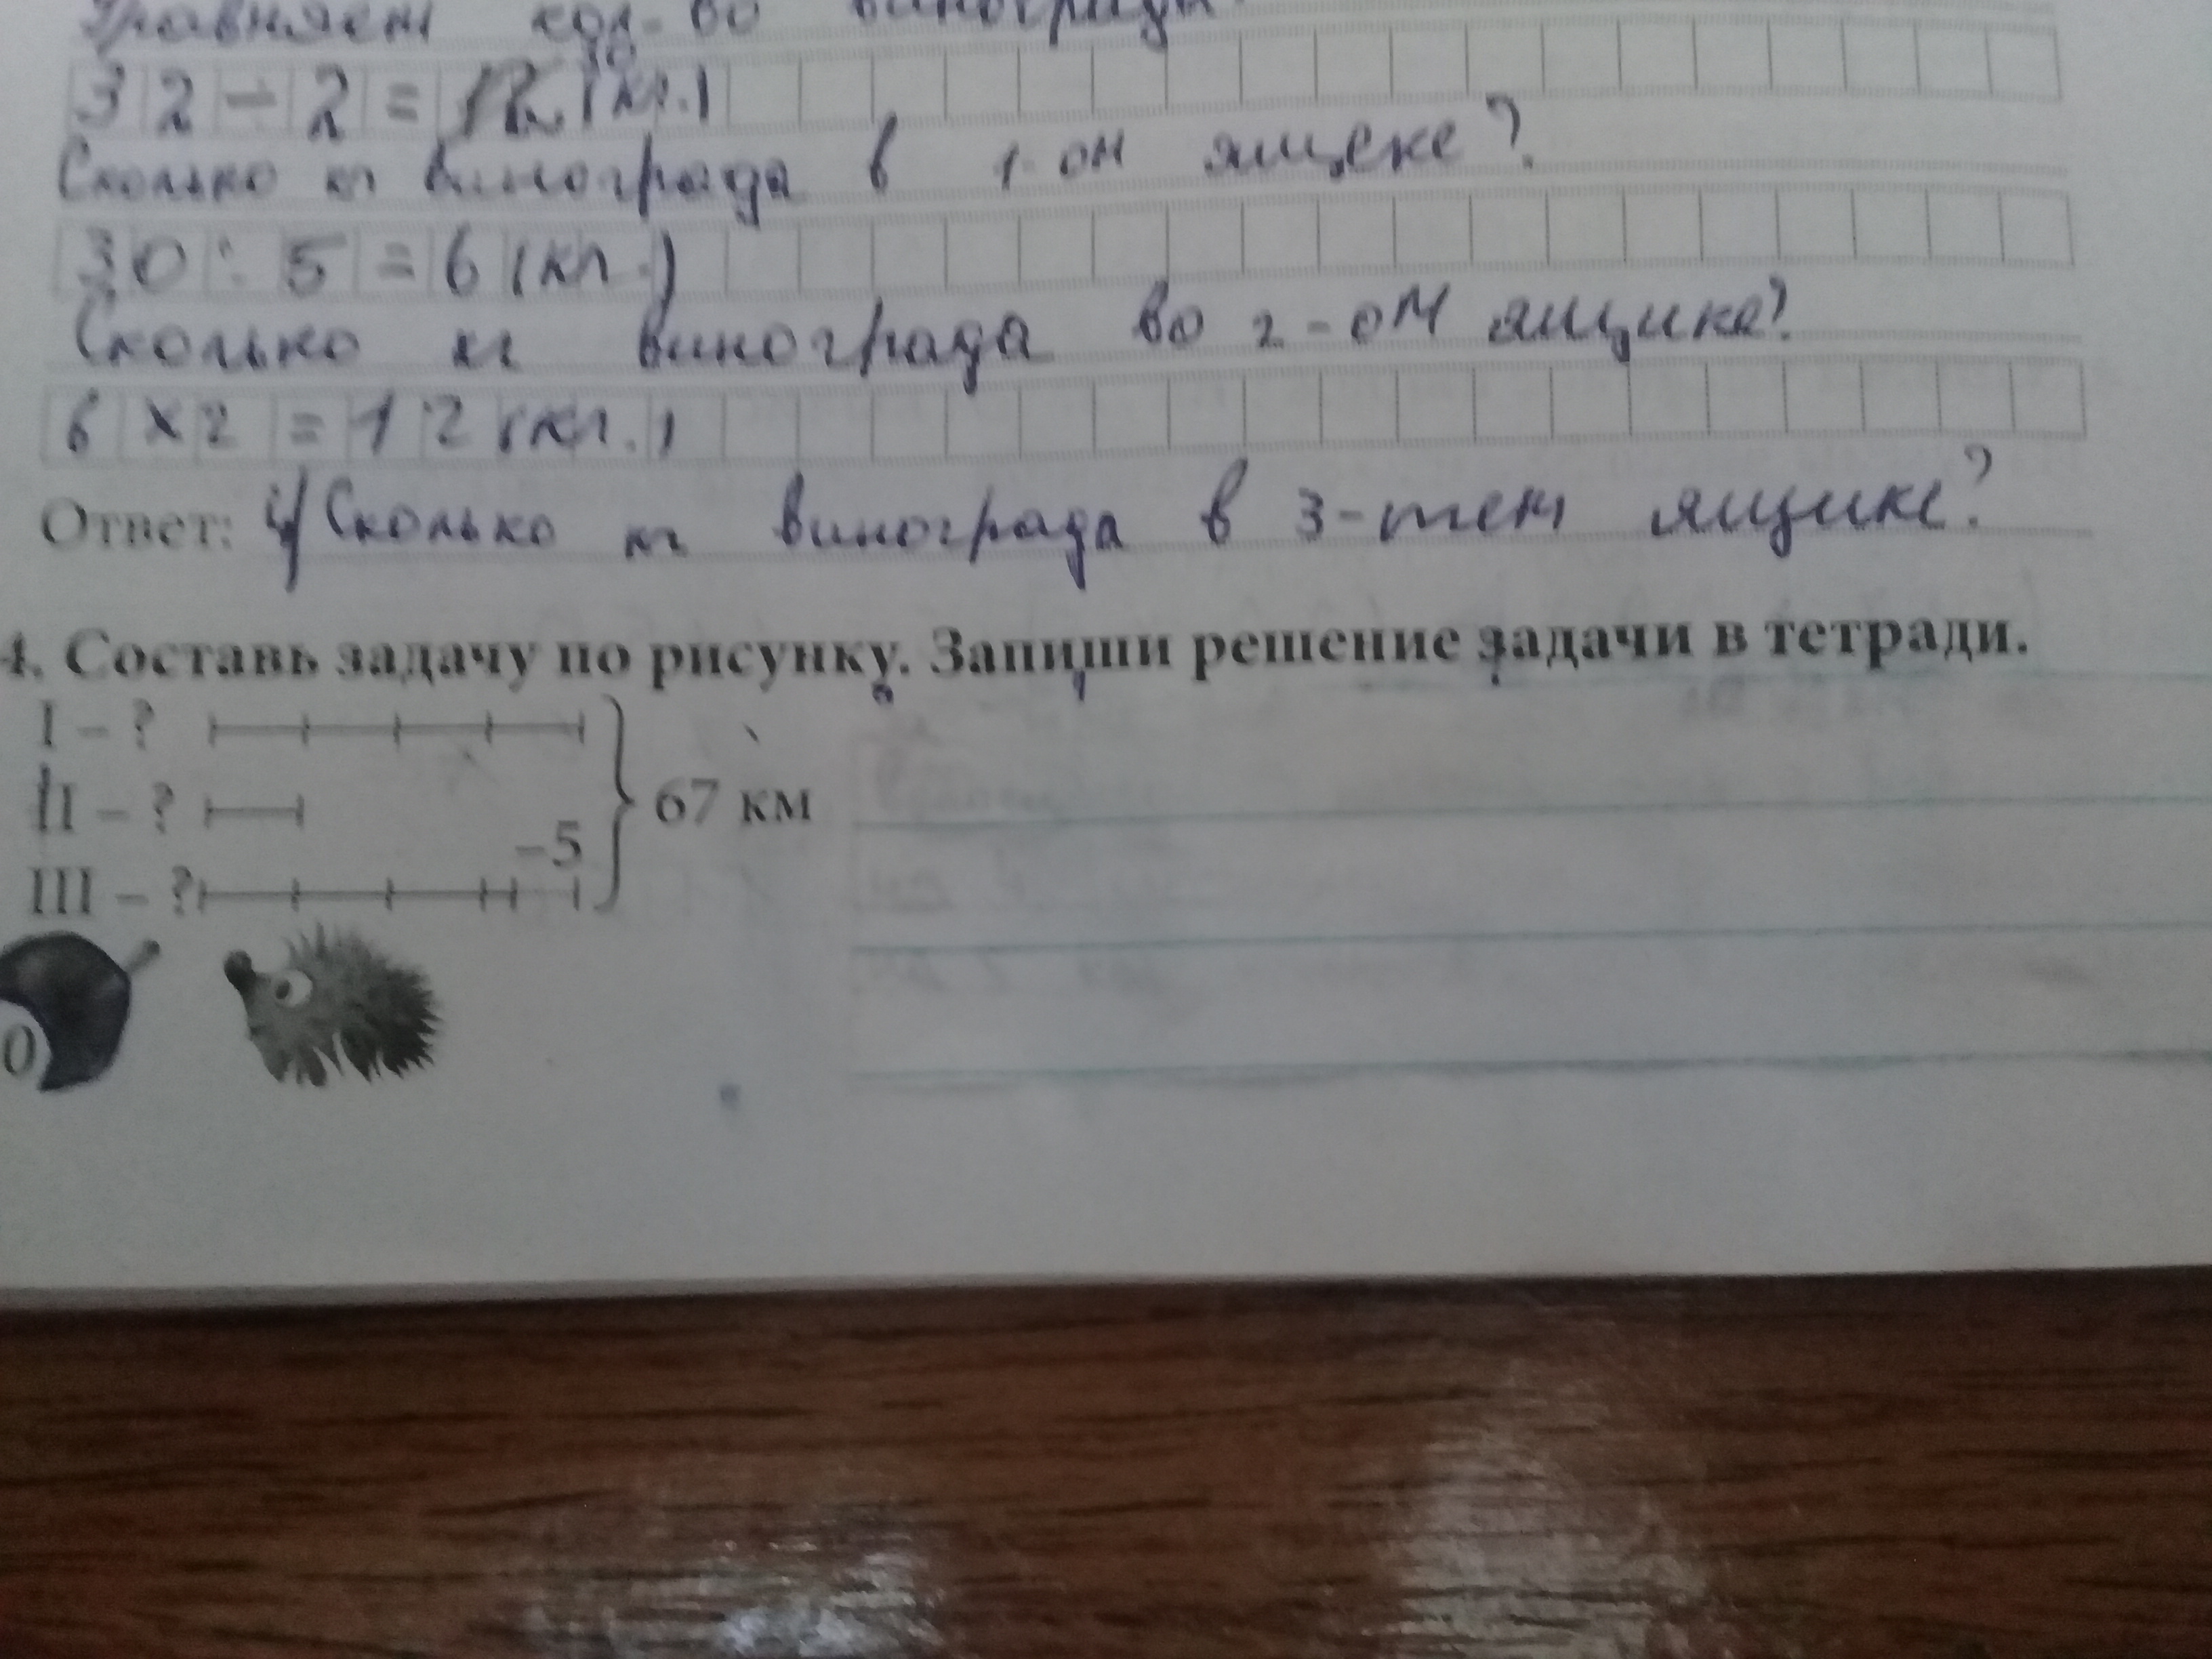 Уравняем кол-во винограда.
32 - 2 = 30 (кг.)
Сколько кг винограда в 1-ом ящеке?
30 : 5 = 6 (кг.)
Сколько кг винограда во 2-ом ящике?
6 х 2 = 12 (кг.)
Ответ: 4) Сколько кг винограда в 3-тем ящике?
4. Составь задачу по рисунку. Запиши решение задачи в тетради.
I – ?
II – ?
67 км
–5
III – ?
0